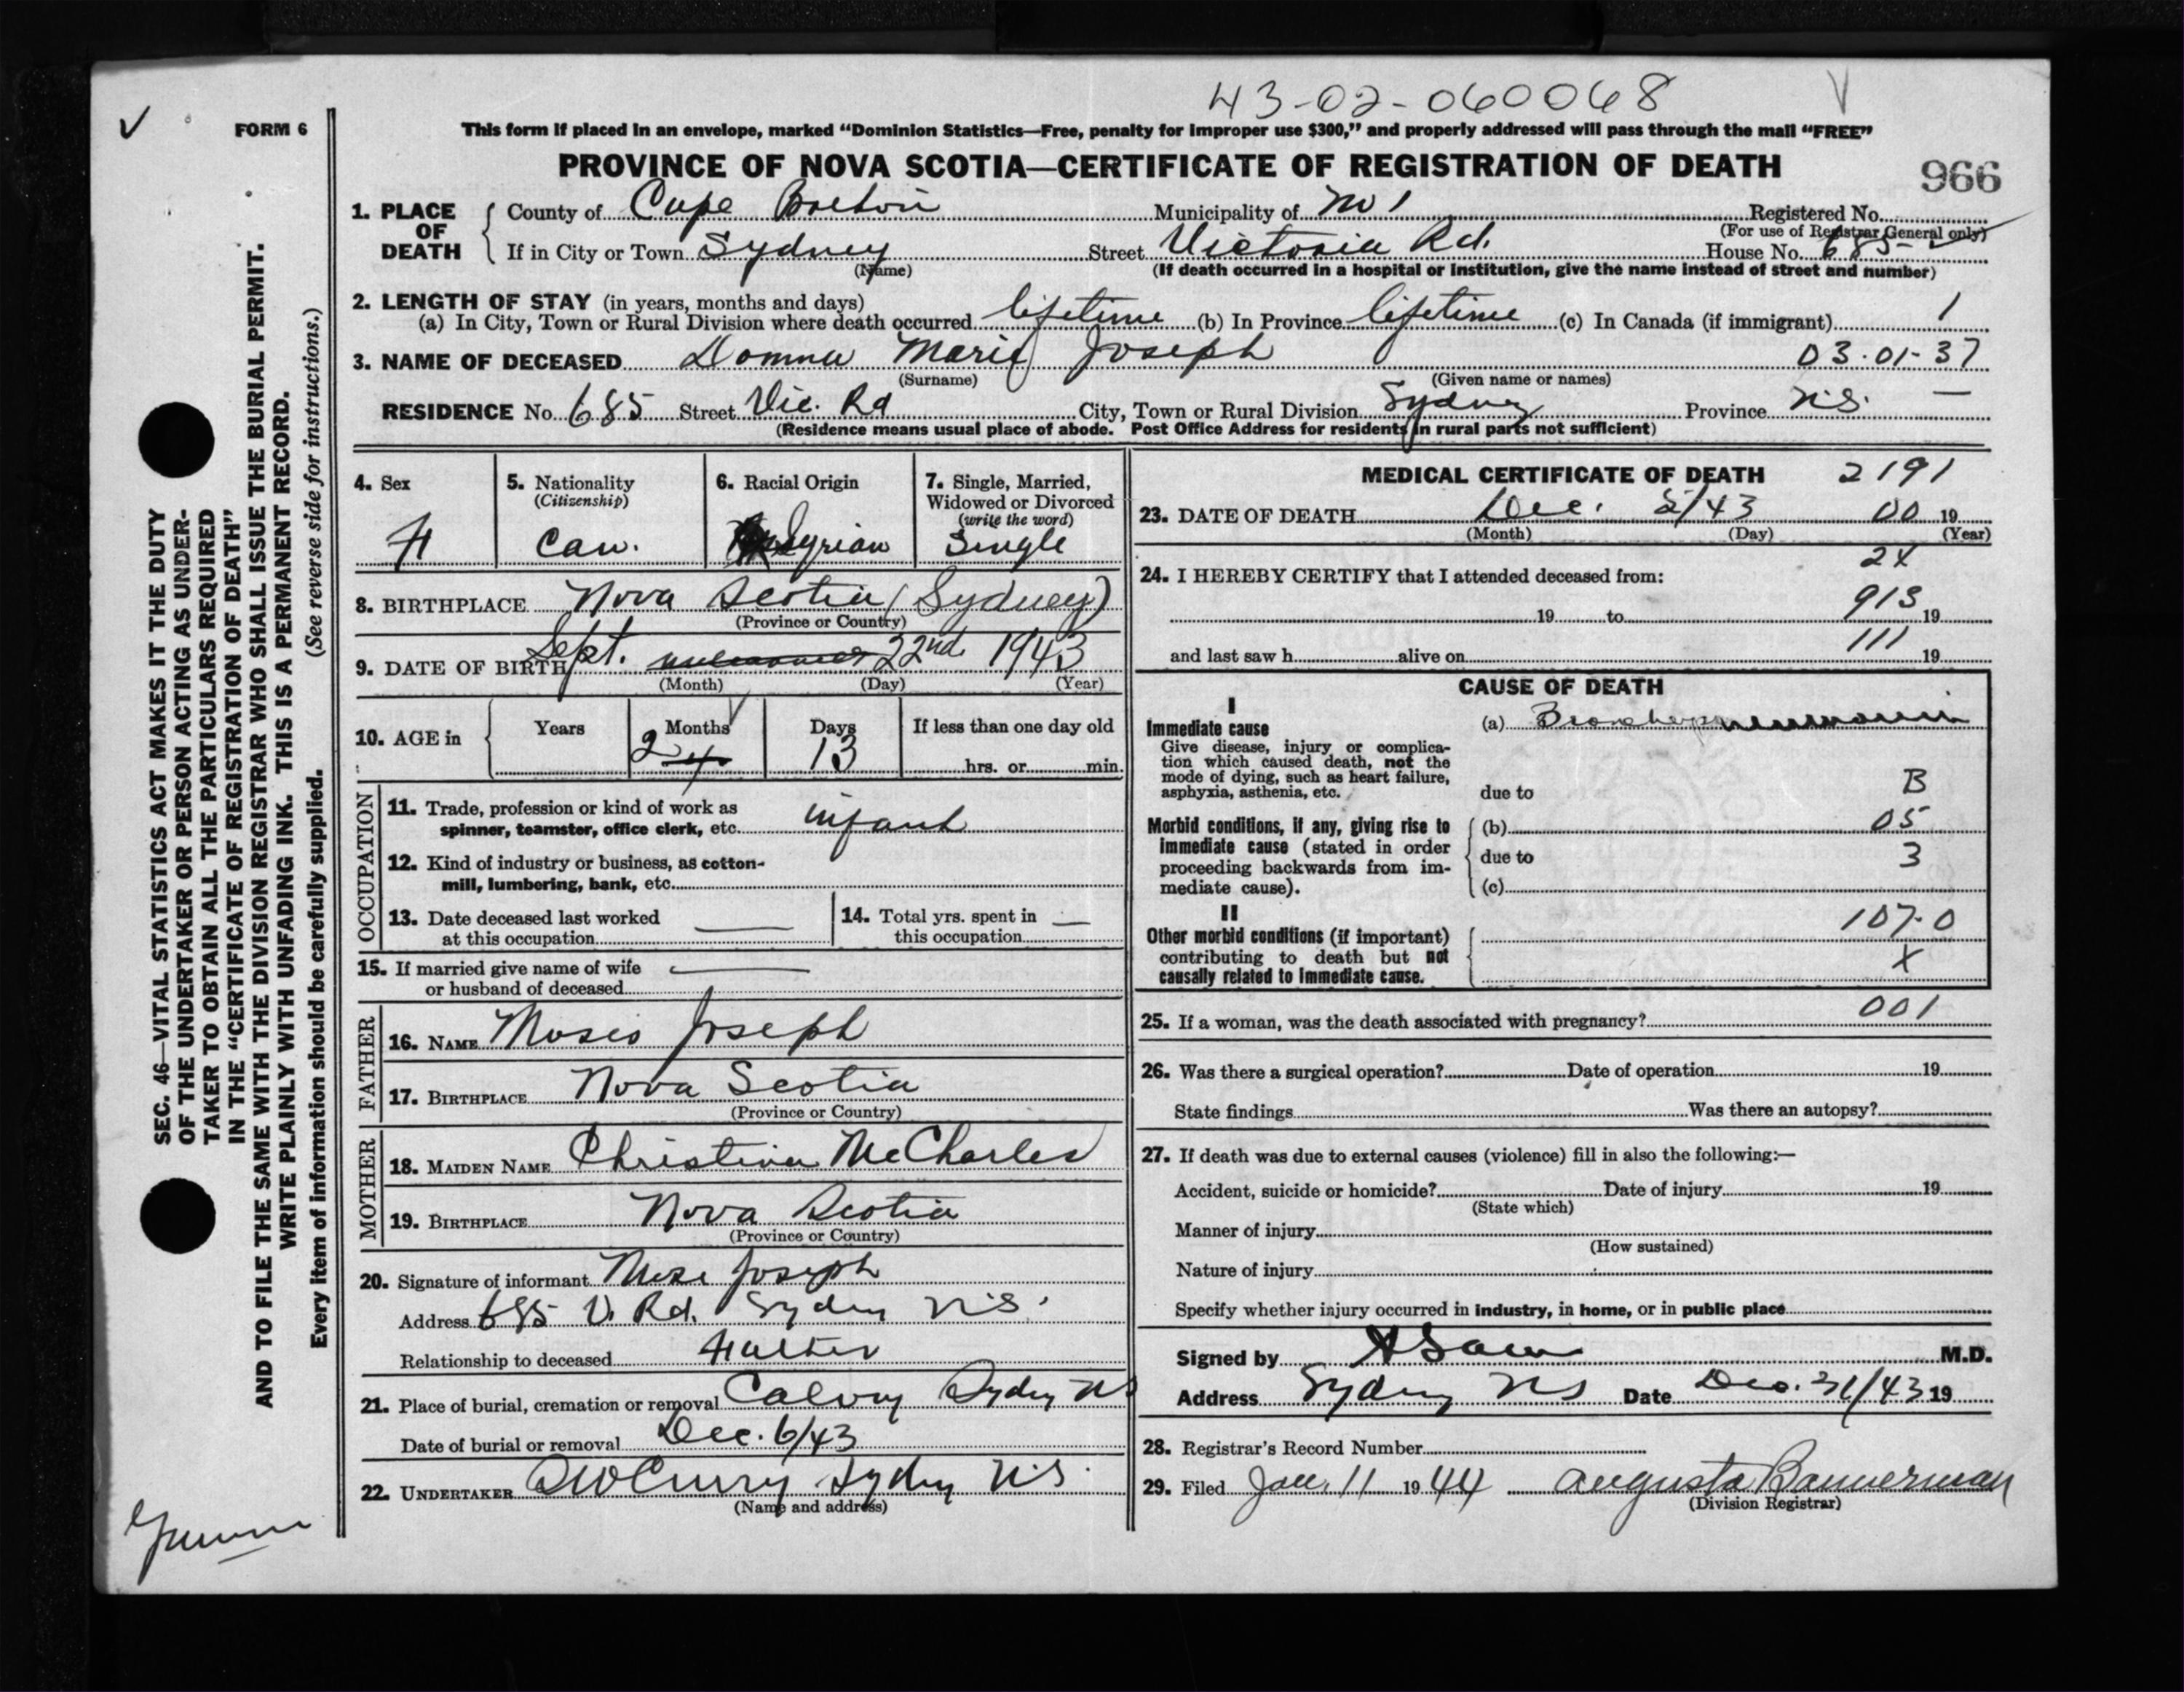 43-02-060068
FORM 6
This form if placed in an envelope, marked “Dominion Statistics—Free, penalty for improper use $300,” and properly addressed will pass through the mail “FREE”
PROVINCE OF NOVA SCOTIA—CERTIFICATE OF REGISTRATION OF DEATH
966
1. PLACE OF DEATH
County of Cape Breton Municipality of Registered No.
(For use of Registrar General only)
If in City or Town Sydney Street Victoria Rd. House No. 685
(Name) (If death occurred in a hospital or institution, give the name instead of street and number)
2. LENGTH OF STAY (in years, months and days)
(a) In City, Town or Rural Division where death occurred lifetime (b) In Province lifetime (c) In Canada (if immigrant) 1
3. NAME OF DECEASED Donna Marie Joseph 03-01-37
(Surname) (Given name or names)
RESIDENCE No. 685 Street Vic. Rd City, Town or Rural Division Sydney Province N.S. —
(Residence means usual place of abode. Post Office Address for residents in rural parts not sufficient)
4. Sex
F
5. Nationality
(Citizenship)
Can.
6. Racial Origin
Syrian
7. Single, Married,
Widowed or Divorced
(write the word)
Single
8. BIRTHPLACE Nova Scotia (Sydney)
(Province or Country)
9. DATE OF BIRTH Sept. 22nd 1943
(Month) (Day) (Year)
10. AGE in
Years Months Days If less than one day old
2 4 13 hrs. or min.
OCCUPATION
11. Trade, profession or kind of work as
spinner, teamster, office clerk, etc. infant
12. Kind of industry or business, as cotton-
mill, lumbering, bank, etc.
13. Date deceased last worked
at this occupation —
14. Total yrs. spent in
this occupation —
15. If married give name of wife
or husband of deceased —
FATHER
16. NAME Moses Joseph
17. BIRTHPLACE Nova Scotia
(Province or Country)
MOTHER
18. MAIDEN NAME Christina McCharles
19. BIRTHPLACE Nova Scotia
(Province or Country)
20. Signature of informant Mose Joseph
Address 685 V. Rd. Sydney N.S.
Relationship to deceased Father
21. Place of burial, cremation or removal Calvry Sydney NS
Date of burial or removal Dec. 6/43
22. UNDERTAKER Curry Sydney N.S.
(Name and address)
MEDICAL CERTIFICATE OF DEATH 2191
23. DATE OF DEATH Dec. 5/43 00 19
(Month) (Day) (Year)
2X
24. I HEREBY CERTIFY that I attended deceased from:
913
19 to 19
111
and last saw h alive on 19
CAUSE OF DEATH
I
Immediate cause
Give disease, injury or complica-
tion which caused death, not the
mode of dying, such as heart failure,
asphyxia, asthenia, etc.
(a) Bronchopneumonia
due to B
Morbid conditions, if any, giving rise to
immediate cause (stated in order
proceeding backwards from im-
mediate cause).
(b) 05
due to 3
(c)
II
Other morbid conditions (if important)
contributing to death but not
causally related to immediate cause.
107.0
X
25. If a woman, was the death associated with pregnancy? 001
26. Was there a surgical operation? Date of operation 19
State findings Was there an autopsy?
27. If death was due to external causes (violence) fill in also the following:—
Accident, suicide or homicide? Date of injury 19
(State which)
Manner of injury
(How sustained)
Nature of injury
Specify whether injury occurred in industry, in home, or in public place
Signed by M.D.
Address Sydney NS Date Dec. 31/43 19
28. Registrar's Record Number
29. Filed Jan. 11 1944 Augusta Bannerman
(Division Registrar)
SEC. 46—VITAL STATISTICS ACT MAKES IT THE DUTY
OF THE UNDERTAKER OR PERSON ACTING AS UNDER-
TAKER TO OBTAIN ALL THE PARTICULARS REQUIRED
IN THE “CERTIFICATE OF REGISTRATION OF DEATH”
AND TO FILE THE SAME WITH THE DIVISION REGISTRAR WHO SHALL ISSUE THE BURIAL PERMIT.
WRITE PLAINLY WITH UNFADING INK. THIS IS A PERMANENT RECORD.
Every item of information should be carefully supplied. (See reverse side for instructions.)